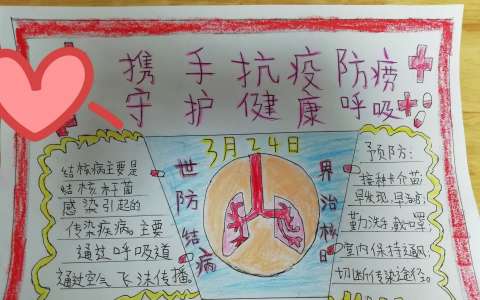 携手抗疫防痨
守护健康呼吸
3月24日
世界防治结核病日
结核病主要是
结核杆菌
感染引起的
传染疾病。主要
通过呼吸道
通过空气飞沫传播。
予页防:
接种卡化苗;
早发现,早治疗;
勤洗手,戴口罩,
室内保持通风,
切断传染途径。